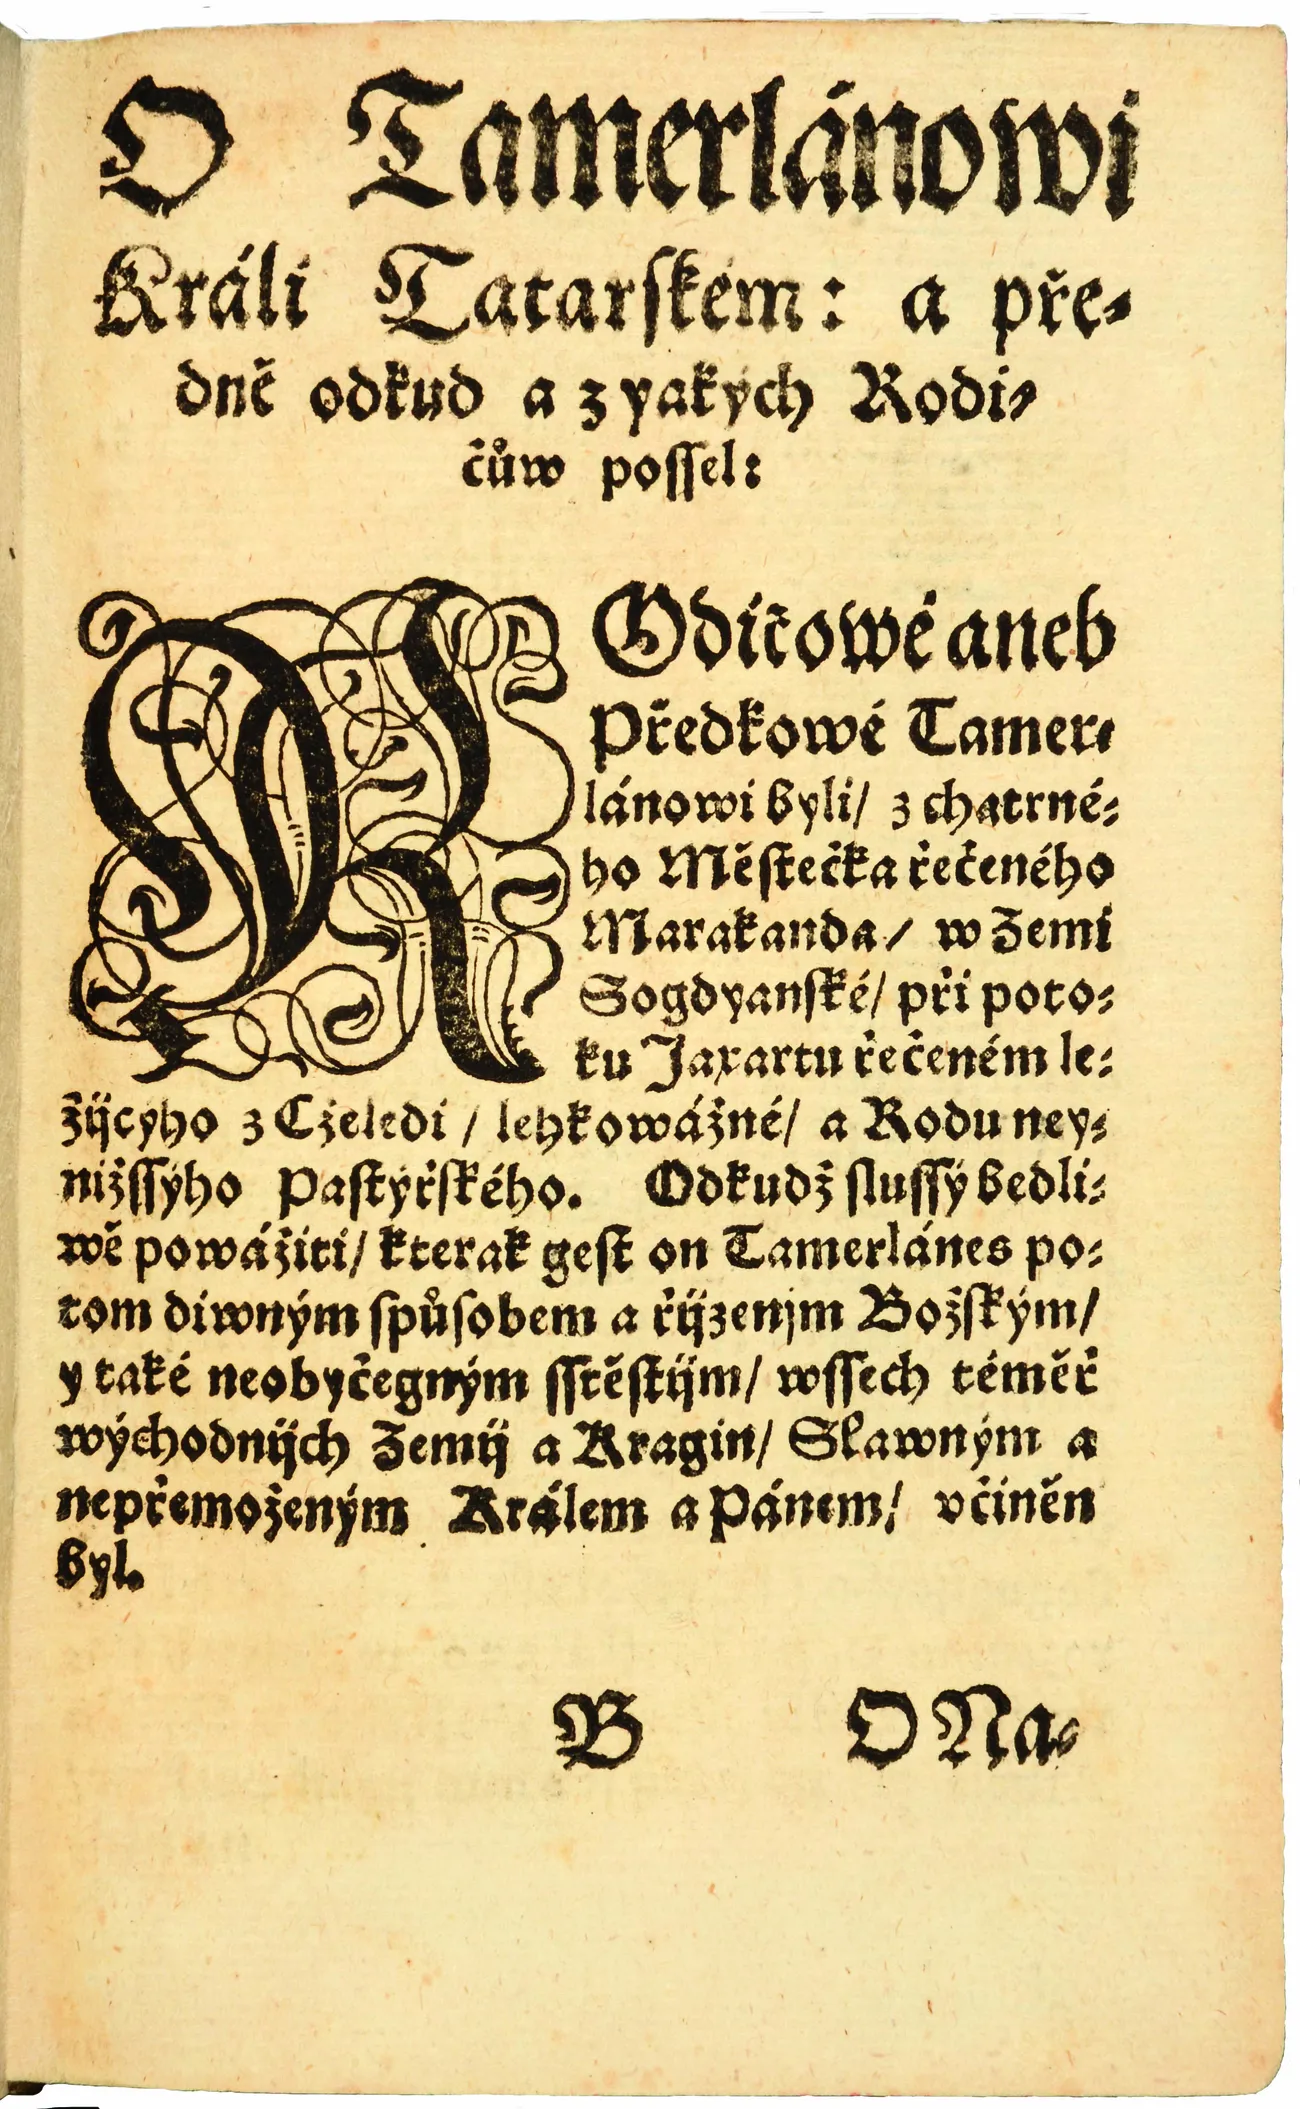 O Tamerlánowi
Králi Tatarském: a pře-
dně odkud a z yakých Rodi-
čůw possel:
ROdičowé aneb
Předkowé Tamer-
lánowi byli/ z chatrné-
ho Městečka řečeného
Marakanda/ w Zemi
Sogdyanské/ při poto-
ku Jaxartu řečeném le-
žijcyho z Czeledi / lehkowážné/ a Rodu ney-
nižssýho Pastýřského. Odkudž slussý bedli-
wě powážiti/ kterak gest on Tamerlánes po-
tom diwným spůsobem a řijzenjm Božským/
y také neobyčegným sstěstijm/ wssech téměř
wýchodnijch Zemij a Kragin/ Slawným a
nepřemoženým Králem a Pánem/ včiněn
byl.
B O Na-